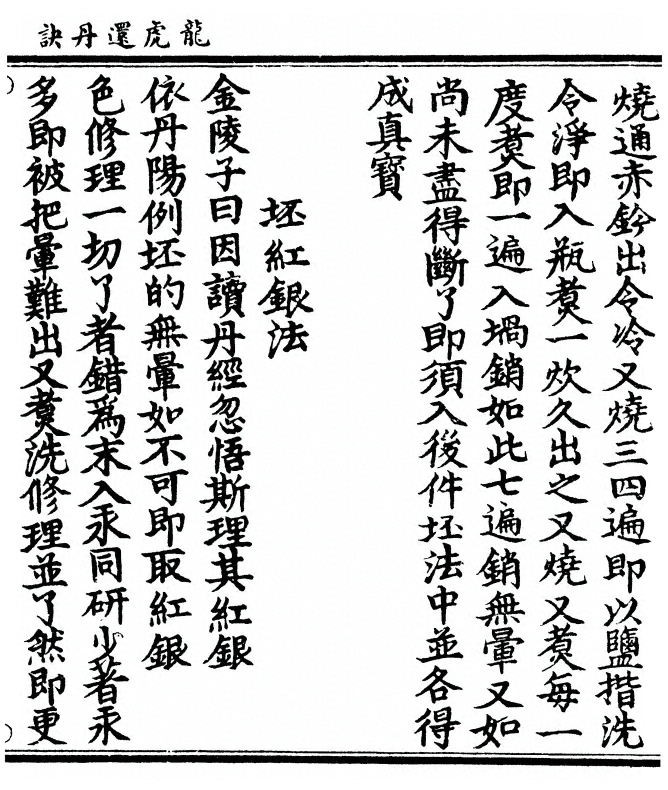 龍虎還丹訣
燒通赤鈐出令冷又燒三四遍即以鹽揩洗
令淨即入瓶煑一炊久出之又燒又煑每一
度煑即一遍入堝銷如此七遍銷無暈又如
尚未盡得斷了即須入後件坯法中並各得
成真寶
坯紅銀法
金陵子曰因讀丹經忽悟斯理其紅銀
依丹陽例坯的無暈如不可即取紅銀
色修理一切了者錯為末入汞同研少著汞
多即被把暈難出又煑洗修理並了然即更